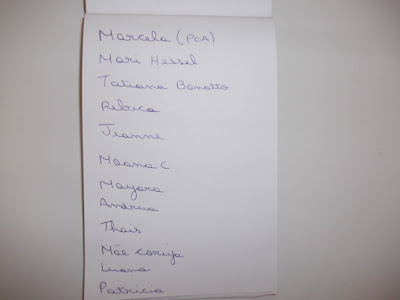 Marcela (POA)
Mari Hessel
Tatiana Bonatto
Rebeca
Jeanne
Moana C
Mayara
Andreia
Thais
Mãe coruja
Luana
Patricia